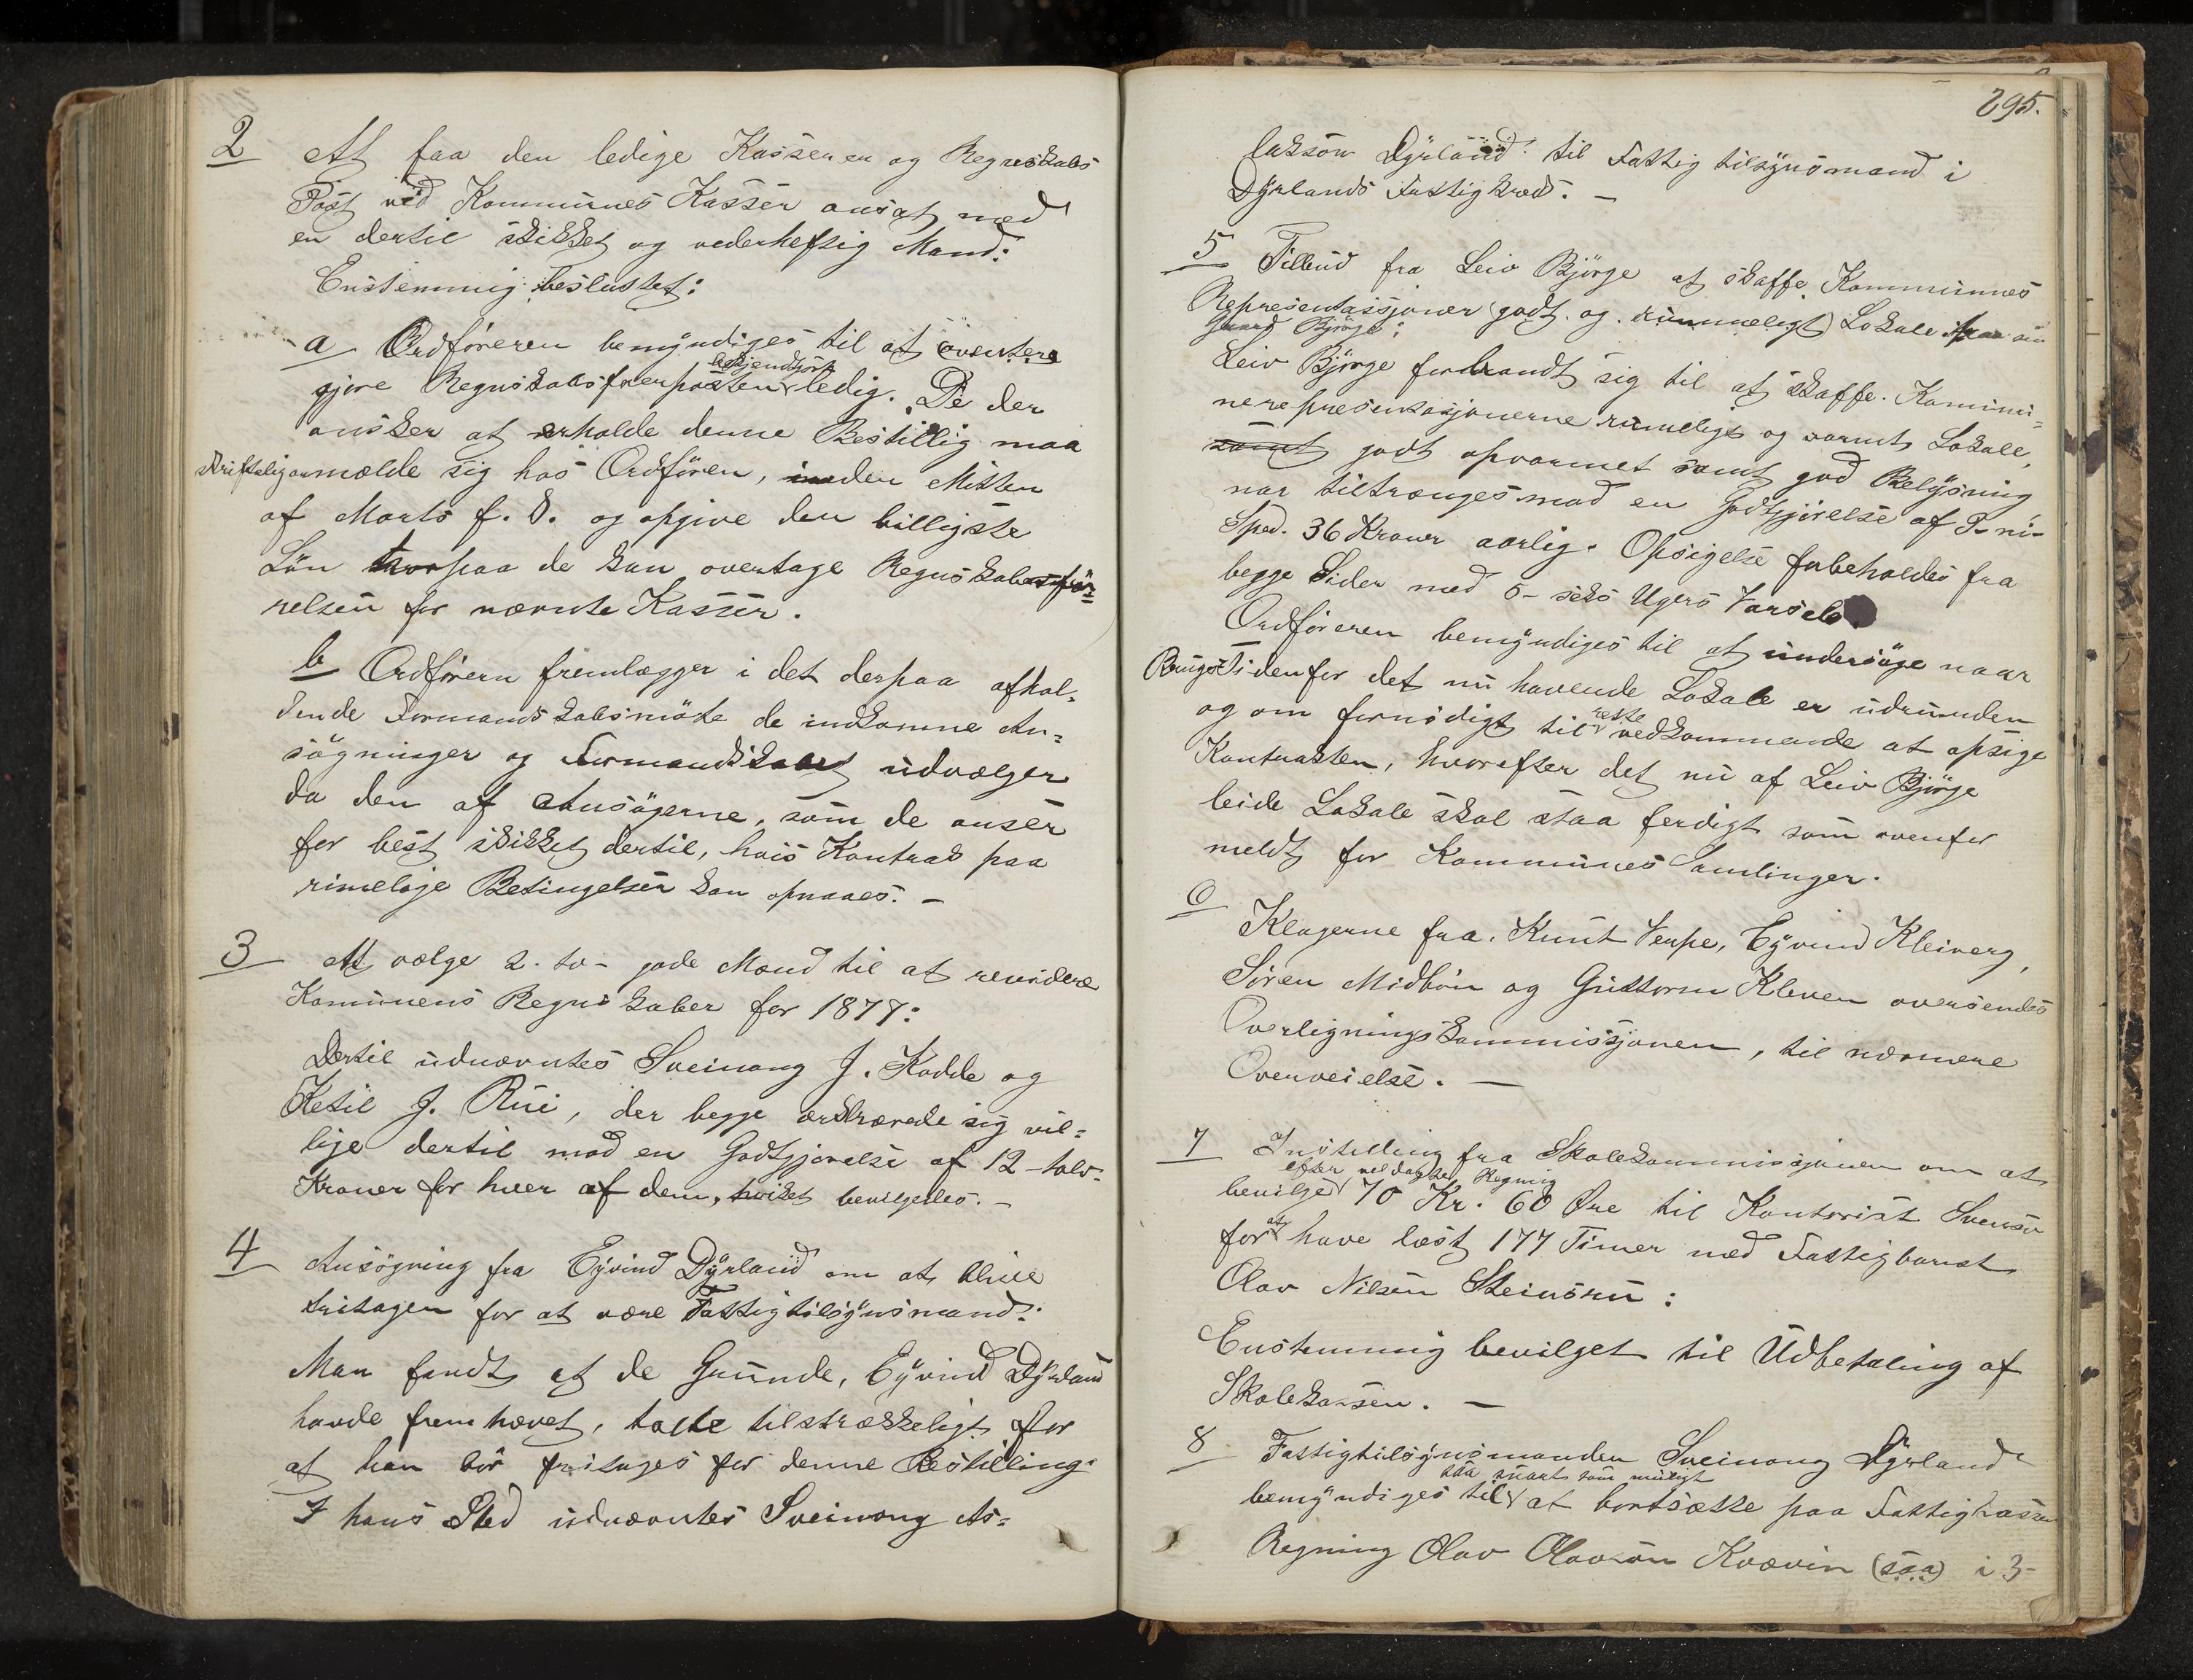 2 At faa den ledige Kasserer og Regnskabs
Post ved Kommunes Kasser ansat med
en dertil skikket og vederheftig Mand:
Enstemmig besluttet:
a Ordføreren bemyndiges til at
gjøre Regnskabsførerposten bekjendtgjort ledig. De der
ønsker at erholde denne Bestillig maa
skrifteligan mælde sig hos Ordføren, inden Mitten
af Marts f. A. og opgive den billigste
Løn hvorpaa de kan overtage Regnskabsfør=
relsen for nævnte Kasser.
b Ordførern fremlægger i det derpaa afhol=
dende Formandskabsmøte de indkomne An=
søgninger og Formandskabet udvælger
da den af Ansøgerne, som de anser
for best skikket dertil, hvis Kontrak paa
rimelige Betingelser kan opnaaes. –
3 At vælge 2. to- gode Mænd til at revidere
Komunens Regnskaber for 1877:
Dertil udnævntes Sveinong J. Kodde og
Ketil J. Rui, der begge ærklærede sig vil=
lige dertil mod en Godtgjørelse af 12 – tolv-
Kroner for hver af dem, hvilket bevilgedes. –
4 Ansøgning fra Eyvind Dyrland om at blive
fritagen for at være Fattigtilsynsmand:
Man fandt at de Grunde, Eyvind Dyrland
havde fremhævet, talte tilstrækkeligt for
at han bør fritages for denne Bestilling.
I hans Sted udnævntes Sveinong As=
295.
laksøn Dyrland til Fattigtilsynsmand i
Dyrlands Fattigkreds. –
5 Tilbud fra Leiv Bjørge at skaffe Kommunnes
Representassjoner godt og rummeligt Lokale paa sin
Gaard Bjørge:
Leiv Bjørge forbandt sig til at skaffe Kommu=
nerepresentasjonerne rumeligt og varmt Lokale,
samt godt opvarmet samt god Belysning
nar tiltrænges mod en Godtgjørelse af 9- ni-
Spd. 36 Kroner aarlig. Opsigelse forbeholdes fra
begge Sider med 6- seks Ugers Varsels.
Ordføreren bemyndiges til at undersøge naar
Brugstiden for det nu havende Lokale er udrunden
og om fornødigt til rette vedkommende at opsige
Kontrakten, hvorefter det nu af Leiv Bjørge
leide Lokale skal staa ferdigt som ovenfor
meldt for Kommunes Samlinger.
6 Klagerne fra Knut Verpe, Eyvind Kleiverg,
Søren Midbøn og Guttorm Kleven oversendes
Overligningskommissjonen, til nærmere
Overveielse. –
7 Instilling fra Skolekommissjonen om at
bevilge efter vedlagte Regnig 70 Kr. 60 Øre til Kontorist Svensen
for at have læst 177 Timer med Fattigbarnet
Olav Nilsen Steinsrun:
Enstemmig bevilget til Udbetaling af
Skolekassen. –
8 Fattigtilsynsmanden Sveinong Dyrland
bemyndiges til saa snart som muligt at bortsætte paa Fattigkassens
Regning Olav Olavsøn Kvævin (saa) i 3-